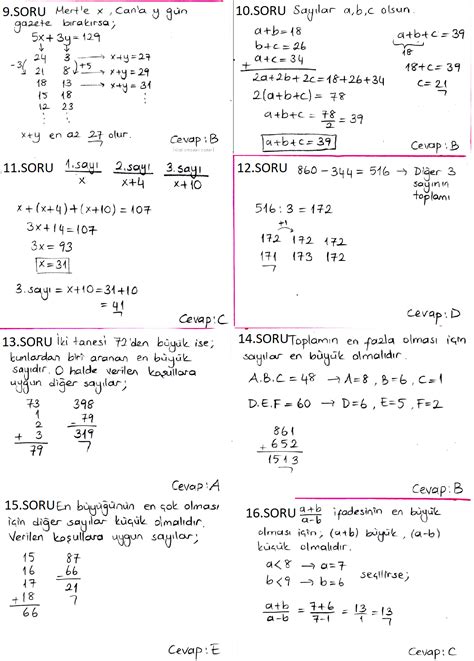 9.SORU Mert'e x, Can'a y gün
gazete bırakırsa;
5x + 3y = 129
24 3 → x+y = 27
-3 21 8 +5 → x+y = 29
18 13 → x+y = 31
15 18
12 23
x+y en az 27 olur.
Cevap: B
10.SORU Sayılar a,b,c olsun.
a+b = 18
b+c = 26
+ a+c = 34
2a+2b+2c = 18+26+34
2(a+b+c) = 78
a+b+c = 78/2 = 39
a+b+c = 39
a+b+c = 39
18
18+c = 39
c = 21
7
Cevap: B
11.SORU 1.sayı 2.sayı 3.sayı
x x+4 x+10
x + (x+4) + (x+10) = 107
3x + 14 = 107
3x = 93
x = 31
3.sayı = x+10 = 31+10
= 41
7
Cevap: C
12.SORU 860 - 344 = 516 → Diğer 3
sayının
toplamı
516 : 3 = 172
+1
172 172 172
171 173 172
7
Cevap: D
13.SORU İki tanesi 72'den büyük ise;
bunlardan biri aranan en büyük
sayıdır. O halde verilen koşullara
uygun diğer sayılar;
73 398
1 - 79
2 319
+ 3 7
79
Cevap: A
14.SORU Toplamın en fazla olması için
sayılar en büyük olmalıdır.
A.B.C = 48 → A=8, B=6, C=1
D.E.F = 60 → D=6, E=5, F=2
861
+ 652
1513
7
Cevap: B
15.SORU En büyüğünün en çok olması
için diğer sayılar küçük olmalıdır.
Verilen koşullara uygun sayılar;
15 87
16 - 66
17 21
+ 18 7
66
Cevap: E
16.SORU a+b/a-b ifadesinin en büyük
olması için; (a+b) büyük, (a-b)
küçük olmalıdır.
a<8 → a=7
b<9 → b=6 seçilirse;
a+b/a-b = 7+6/7-1 = 13/1 = 13
7
Cevap: C